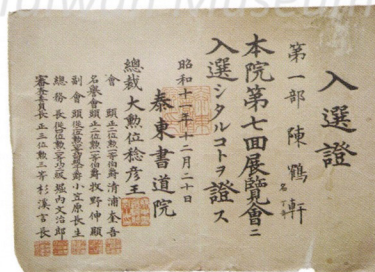 入選證
第一部 陳鶴軒
本院第七回展覽會ニ
入選シタルコトヲ證ス
昭和十一年十二月二十日
泰東書道院
總裁 大勲位 稔彦王
會頭 正二位勲一等伯爵 清浦奎吾
名譽會頭 正二位勲一等伯爵 牧野伸顯
副會頭 小笠原長生
總務長 堀内文治郎
審査委員長 正三位勲三等 杉溪言長